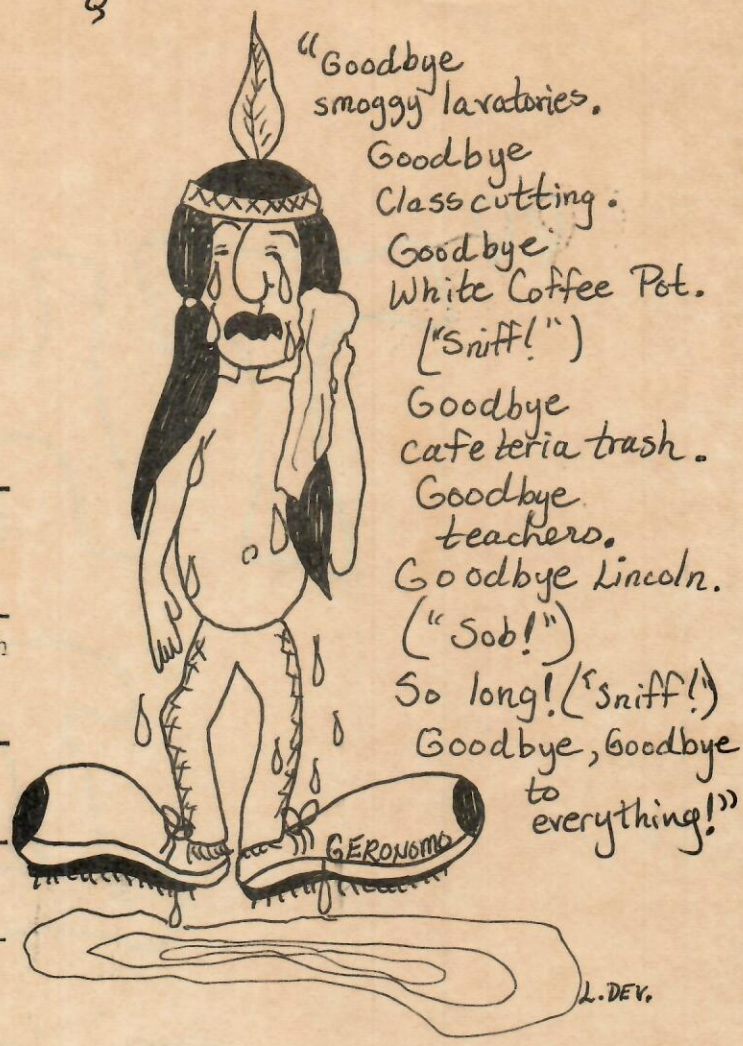 "Goodbye
smoggy lavatories.
Goodbye
Class cutting.
Goodbye
White Coffee Pot.
("Sniff!")
Goodbye
cafeteria trash.
Goodbye
teachers.
Goodbye Lincoln.
("Sob!")
So long! ("Sniff!")
Goodbye, Goodbye
to
everything!"
GERONOMO
L. DEV.